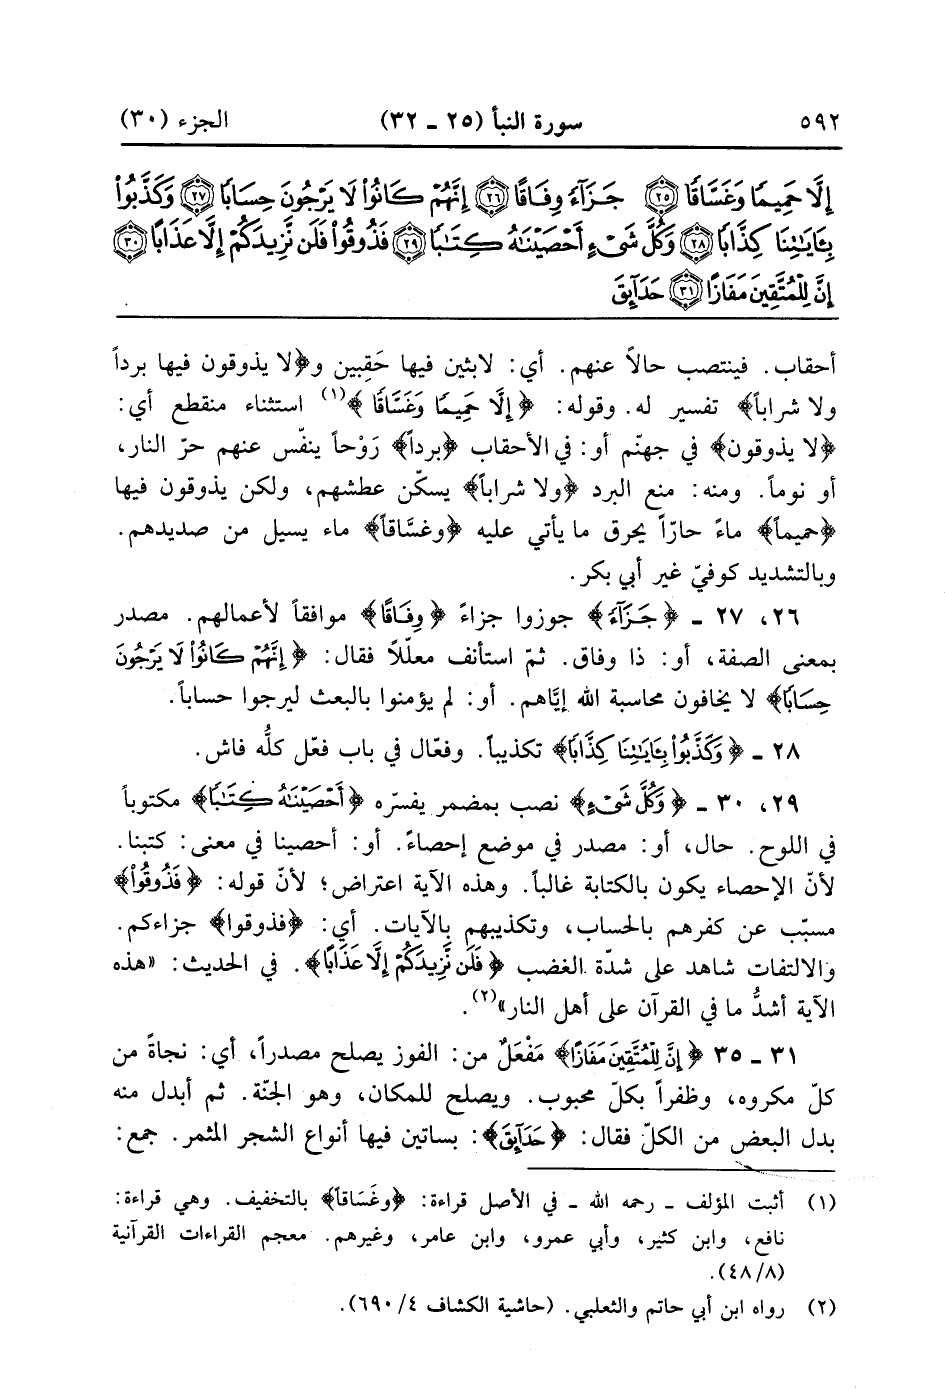 ٥٩٢ سورة النبأ (٢٥ ـ ٣٢) الجزء (٣٠)
إِلَّا حَمِيمًا وَغَسَّاقًا ﴿٢٥﴾ جَزَآءً وِفَاقًا ﴿٢٦﴾ إِنَّهُمْ كَانُوا۟ لَا يَرْجُونَ حِسَابًا ﴿٢٧﴾ وَكَذَّبُوا۟
بِـَٔايَـٰتِنَا كِذَّابًا ﴿٢٨﴾ وَكُلَّ شَىْءٍ أَحْصَيْنَـٰهُ كِتَـٰبًا ﴿٢٩﴾ فَذُوقُوا۟ فَلَن نَّزِيدَكُمْ إِلَّا عَذَابًا ﴿٣٠﴾
إِنَّ لِلْمُتَّقِينَ مَفَازًا ﴿٣١﴾ حَدَآئِقَ
أحقاب. فينتصب حالاً عنهم. أي: لابثين فيها حَقِبين و﴿لا يذوقون فيها برداً
ولا شراباً﴾ تفسير له. وقوله: ﴿إِلَّا حَمِيمًا وَغَسَّاقًا﴾(١) استثناء منقطع أي:
﴿لا يذوقون﴾ في جهنّم أو: في الأحقاب ﴿برداً﴾ رَوْحاً ينفّس عنهم حرّ النار،
أو نوماً. ومنه: منع البرد ﴿ولا شراباً﴾ يسكّن عطشهم، ولكن يذوقون فيها
﴿حميماً﴾ ماءً حارّاً يحرق ما يأتي عليه ﴿وغسَّاقاً﴾ ماء يسيل من صديدهم.
وبالتشديد كوفيّ غير أبي بكر.
٢٦، ٢٧ ـ ﴿جَزَآءً﴾ جوزوا جزاءً ﴿وِفَاقًا﴾ موافقاً لأعمالهم. مصدر
بمعنى الصفة، أو: ذا وفاق. ثمّ استأنف معلّلاً فقال: ﴿إِنَّهُمْ كَانُوا۟ لَا يَرْجُونَ
حِسَابًا﴾ لا يخافون محاسبة الله إيَّاهم. أو: لم يؤمنوا بالبعث ليرجوا حساباً.
٢٨ ـ ﴿وَكَذَّبُوا۟ بِـَٔايَـٰتِنَا كِذَّابًا﴾ تكذيباً. وفعّال في باب فعّل كلُّه فاش.
٢٩، ٣٠ ـ ﴿وَكُلَّ شَىْءٍ﴾ نصب بمضمر يفسّره ﴿أَحْصَيْنَـٰهُ كِتَـٰبًا﴾ مكتوباً
في اللوح. حال، أو: مصدر في موضع إحصاءً. أو: أحصينا في معنى: كتبنا.
لأنّ الإحصاء يكون بالكتابة غالباً. وهذه الآية اعتراض؛ لأنّ قوله: ﴿فَذُوقُوا۟﴾
مسبّب عن كفرهم بالحساب، وتكذيبهم بالآيات. أي: ﴿فذوقوا﴾ جزاءكم.
والالتفات شاهد على شدّة الغضب ﴿فَلَن نَّزِيدَكُمْ إِلَّا عَذَابًا﴾. في الحديث: «هذه
الآية أشدُّ ما في القرآن على أهل النار»(٢).
٣١ ـ ٣٥ ﴿إِنَّ لِلْمُتَّقِينَ مَفَازًا﴾ مَفْعَلٌ من: الفوز يصلح مصدراً، أي: نجاةً من
كلّ مكروه، وظفراً بكلّ محبوب. ويصلح للمكان، وهو الجنّة. ثم أبدل منه
بدل البعض من الكلّ فقال: ﴿حَدَآئِقَ﴾: بساتين فيها أنواع الشجر المثمر. جمع:
(١) أثبت المؤلف ـ رحمه الله ـ في الأصل قراءة: ﴿وغَسَاقاً﴾ بالتخفيف. وهي قراءة:
نافع، وابن كثير، وأبي عمرو، وابن عامر، وغيرهم. معجم القراءات القرآنية
(٨/ ٤٨).
(٢) رواه ابن أبي حاتم والثعلبي. (حاشية الكشاف ٤/ ٦٩٠).